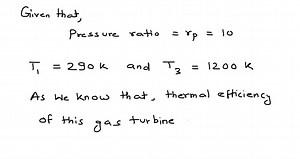 Given that,
Pressure ratio = rp = 10
T1 = 290 K and T3 = 1200 K
As we know that, thermal efficiency
of this gas turbine